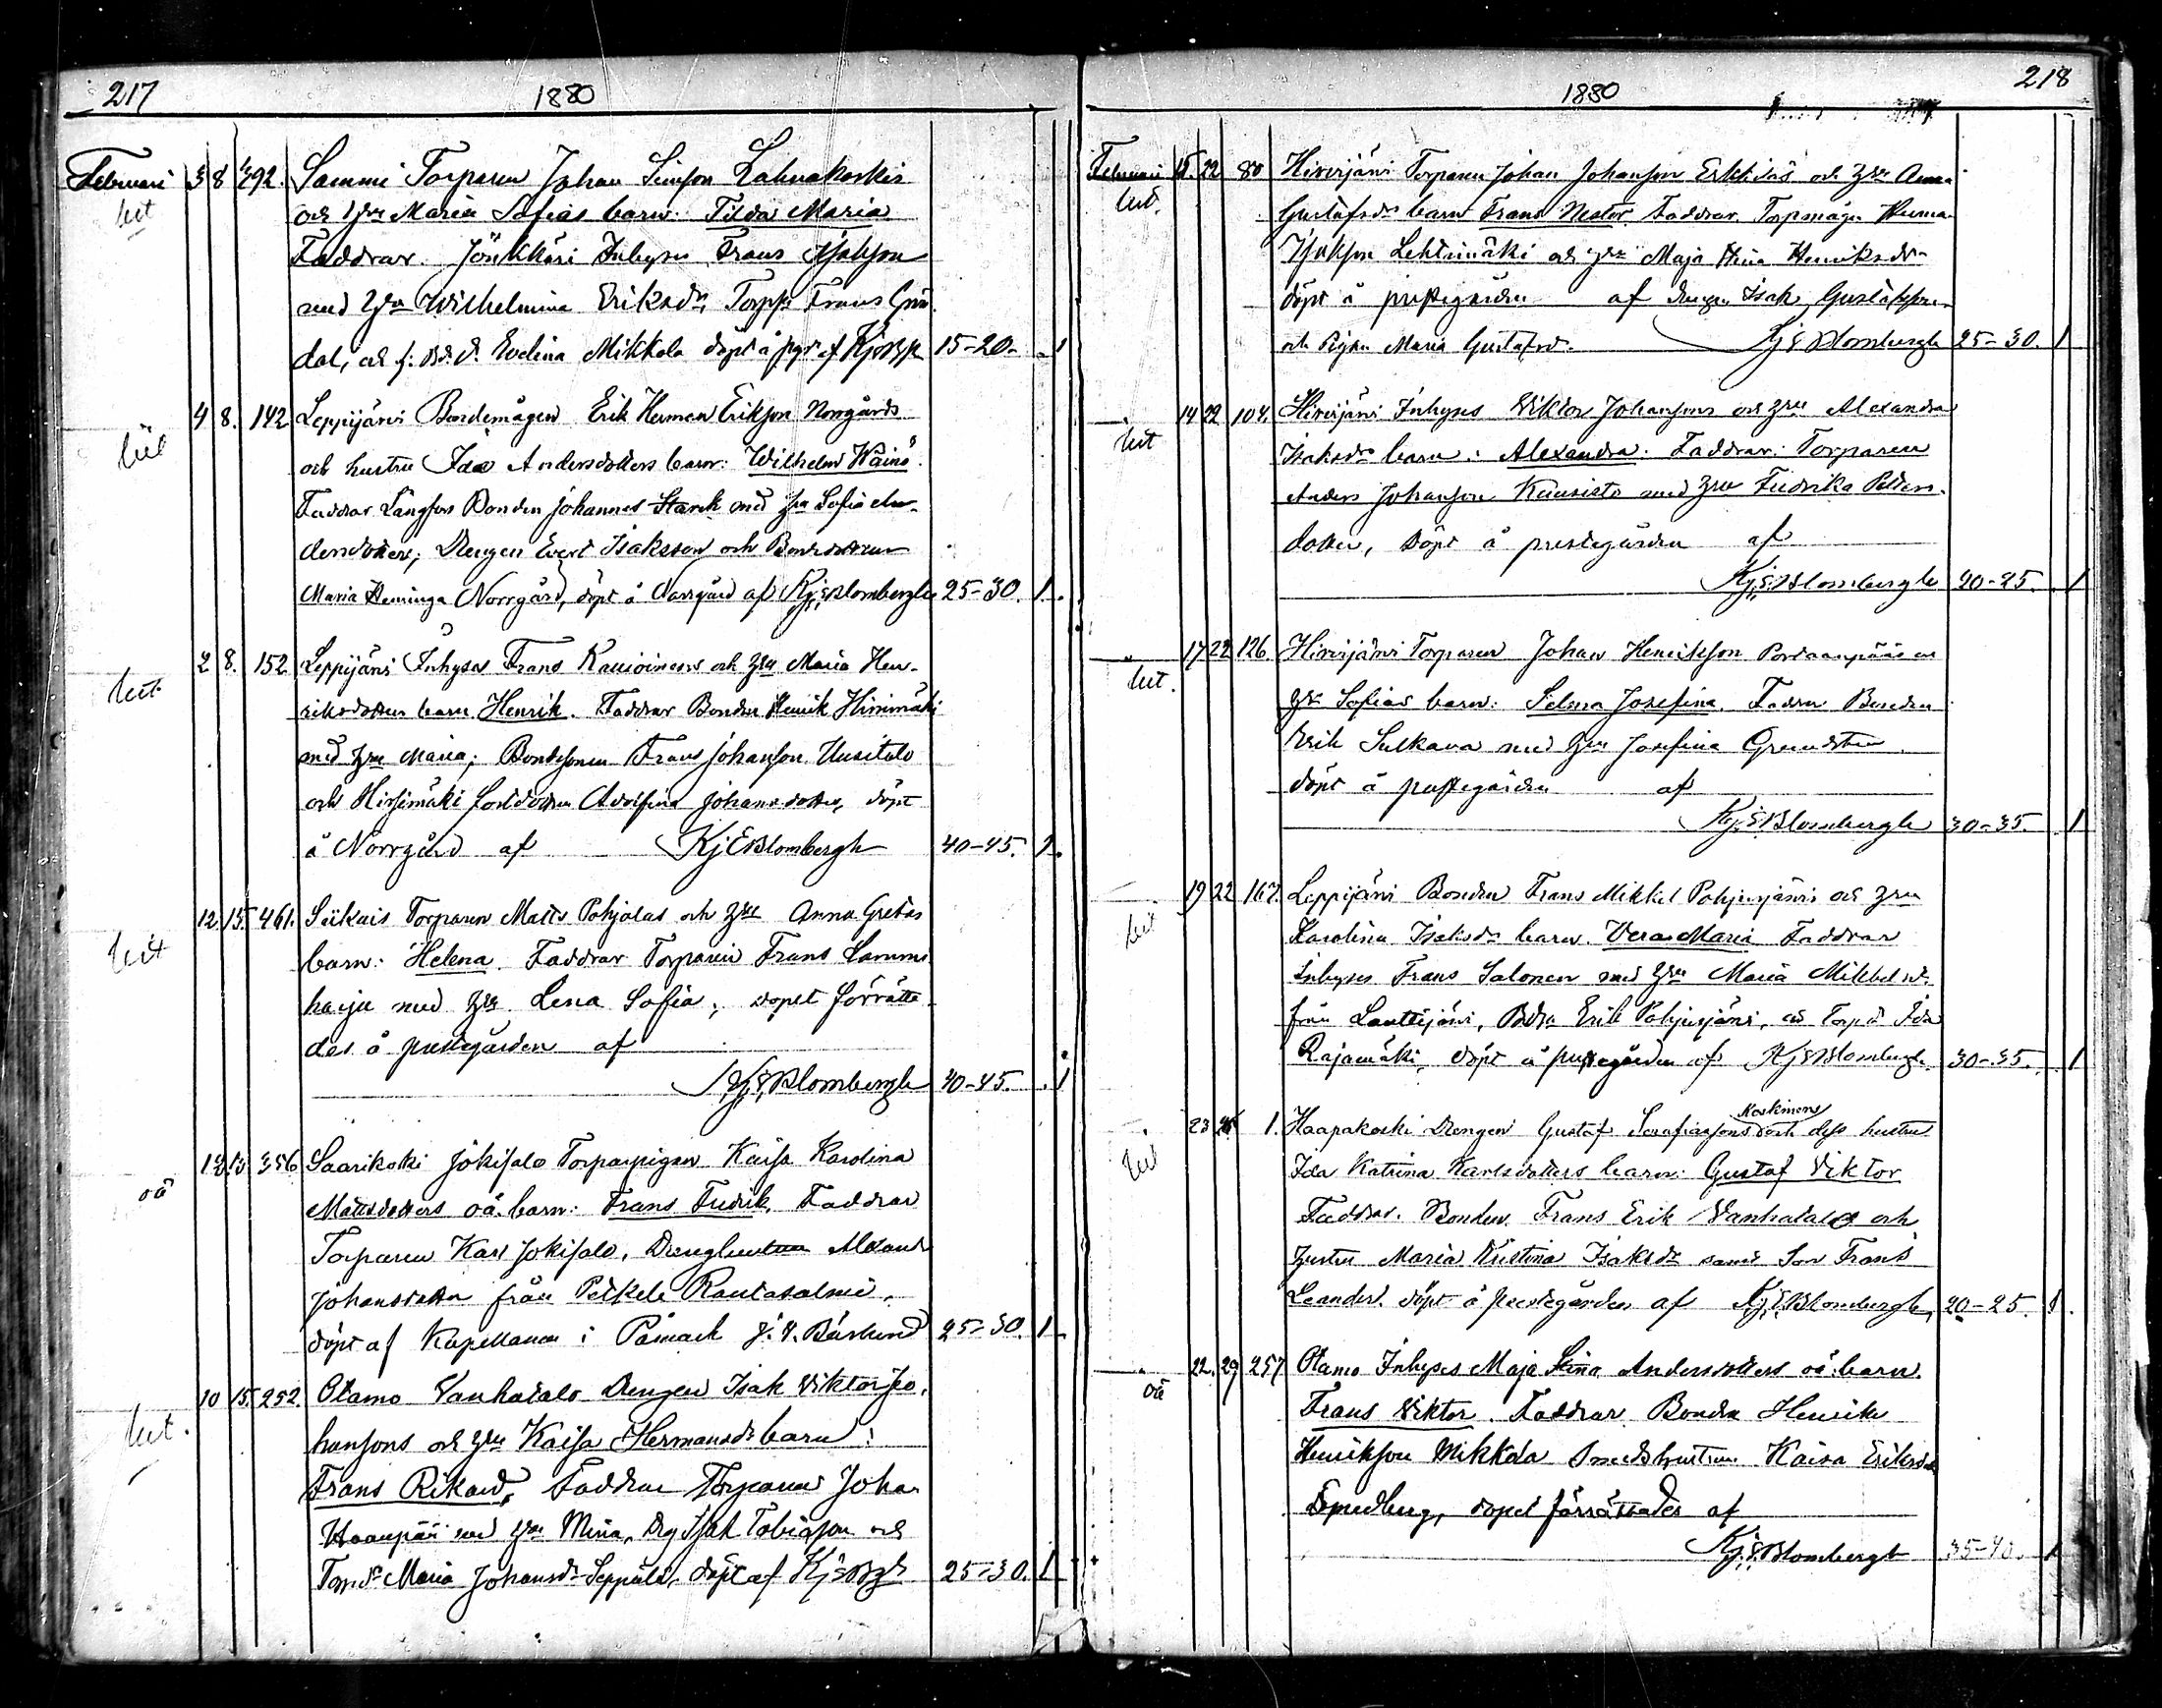 217 1880
Februari 3 8 292. Sammi Torparen Johan Simson Lahnakoskis
och hru Maria Sofias barn: Tilda Maria
Faddrar. Jönkkäri Inhyses Frans Isakson
med hru Wilhelmina Eriksdr, Frans Grön
dal, och Evelina Mikkola döpt å pgd af 15-20. 1
4 8. 142 Leppijärvi Bondemågen Erik Herman Erikson Norrgårds
och hustru Ida Andersdotters barn: Wilhelm Wäinö.
Faddrar Långfors Bonden Johannes Starck med hru Sofia An-
dersdotter, Drengen Evert Isaksson och Bondedottren
Maria Heminga Norrgård, döpt å Norrgård af Kj. E. Blombergh 25-30. 1.
2 8. 152 Leppijärvi Inhyses Frans Kauioinens och hru Maria Hen-
riksdotters barn Henrik. Faddrar Bonden Henrik Hirsimäki
med hru Maria; Bondesonen Frans Johanson Uusitalo
och Hirsimäki Adolfina Johansdotter, döpt
å Norrgård af Kj E Blombergh 40-45. 1.
12. 15. 461. Siikais Torparen Matts Pohjolas och hru Anna Gretas
barn: Helena. Faddrar Torparen Frans Lamms
harju med hru Lena Sofia; dopet förrätta-
des å prestegården af
Kj. E. Blombergh 40-45. 1
13 15 356 Saarikoski Jokisalo Torparpigan Kaisa Karolina
oä Mattsdotters oä. barn: Frans Fredrik. Faddrar
Torparen Karl Jokisalo, Drenghustrun Alexandra
Johansdotter från Peikela Rautasalmi.
döpt af Kapellanen i Påmark 25-30. 1
10 15. 252. Otamo Vanhatalo Drengen Isak Viktor Jo-
hansons och hru Kaisa Hermansdr barn:
Frans Rikard, Faddrar Torparen Johan
Haanpää med hru Mina, Drg Isak Tobiasson och
Maria Johansdr Seppälä, döpt af 25-30. 1
1880 218
Februari 15. 22 80 Hirvijärvi Torparen Johan Johanson Erkkiläs och hru Anna
Gustafsdr barn Frans Nestor. Faddrar Torpmågen Herman
Isakson Lehtimäki och hru Maja Stina Henriksdr
döpt å prestegården af drengen Isak Gustafsson
och Pigan Maria Gustafsd. Kj E Blombergh 25-30. 1
14 22 104. Hirvijärvi Inhyses Viktor Johansons och hru Alexandra
Isaksdr barn: Alexandra. Faddrar: Torparen
Anders Johanson Kuusisto med hru Fredrika Petters-
dotter, döpt å prestegården af
Kj. E. Blombergh 20-25. 1
17 22 126. Hirvijärvi Torparen Johan Henrikson Portaanpää och
hru Sofias barn: Selma Josefina. Faddrar Bonden
Erik Sulkava med hru Josefina Grundsten
döpt å prestegården af
Kj. E. Blombergh 30-35. 1
19 22 167. Leppijärvi Bonden Frans Mikkel Pohjusjärvis och hru
Karolina Isaksdr barn. Vera Maria Faddrar
Inhyses Frans Salonen med hru Maria Mikkelsd.
från Lauttijärvi, Erik Pohjusjärvi, och Torpd Ida
Rajamäki, döpt å prestegården af Kj E Blombergh 30-35. 1
23 1. Haapakoski Drengen Gustaf Serafiasons Koskinens och dess hustru
Ida Katrina Karlsdotters barn: Gustaf Viktor
Faddrar. Bonden Frans Erik Vanhatalo och
hustru Maria Kristina Isaksdr samt Son Frans
Leander. döpt å prestegården af Kj. E. Blombergh, 20-25. 1.
22. 29 257 Otamo Inhyses Maja Stina Andersdotters oä. barn.
oä Frans Viktor. Faddrar Bonden Henrik
Henrikson Mikkola Smedshustrun Kaisa Eriksdr
Smedberg, dopet förrättades af
Kj. E. Blombergh 35-40. 1